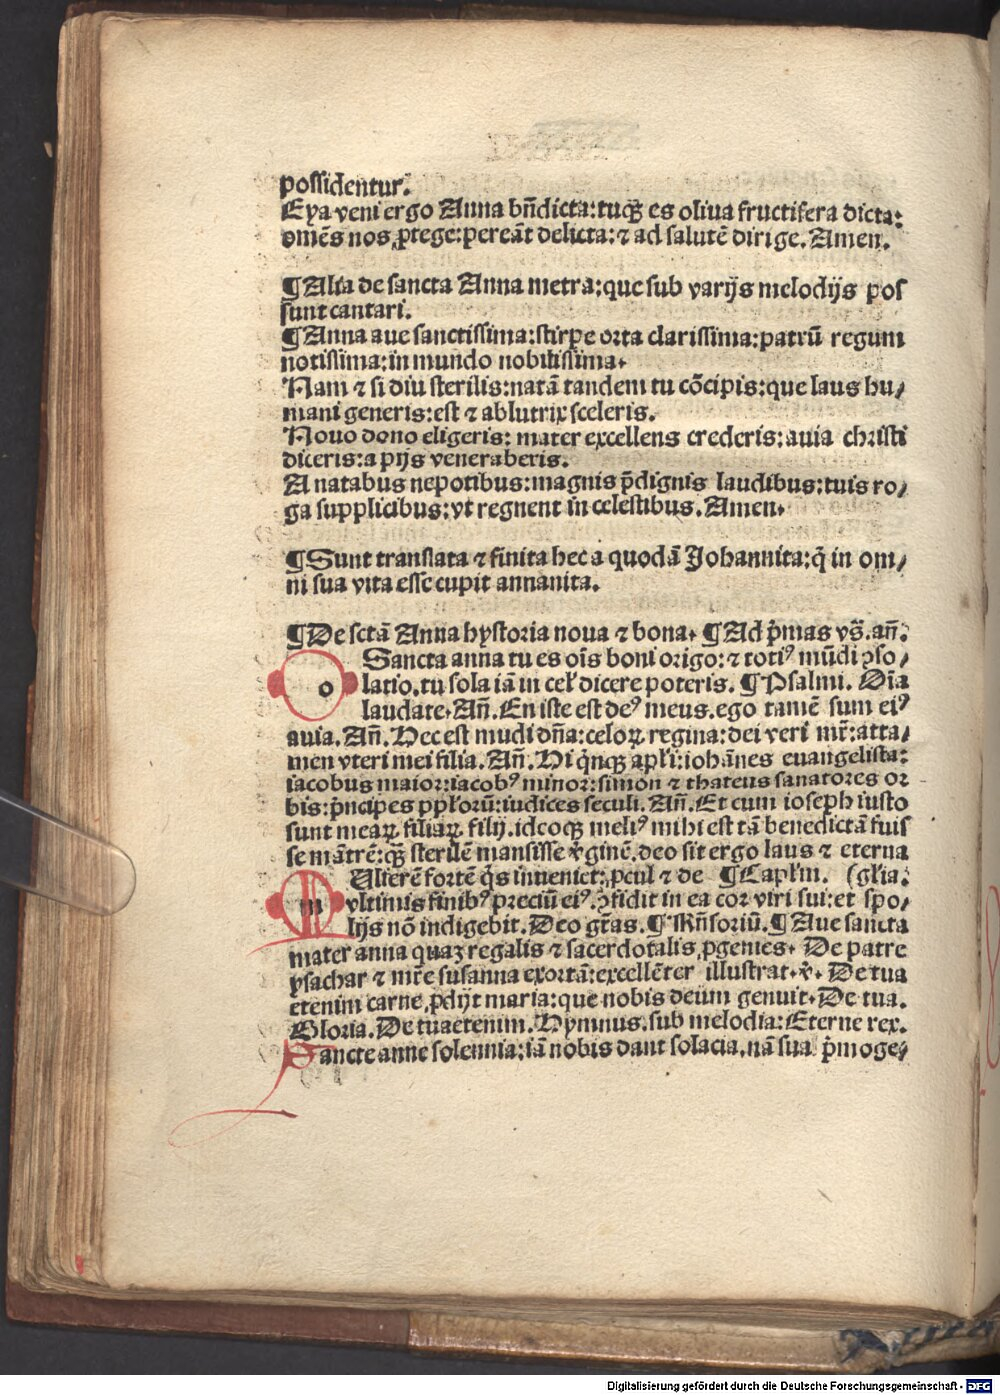 possidentur.
Eya veni ergo Anna bn̄dicta:tuqȝ es oliua fructifera dicta:
om̄es nos ꝓtege:pereāt delicta:⁊ ad salutē dirige.Amen.
¶Alia de sancta Anna metra:que sub varijs melodijs pos
sunt cantari.
¶Anna aue sanctissima:stirpe orta clarissima:patrū regum
notissima:in mundo nobilissima.
Nam ⁊ si diu sterilis:natā tandem tu cōcipis:que laus hu/
mani generis:est ⁊ ablutrix sceleris.
Nouo dono eligeris: mater excellens crederis:auia christi
diceris:a pijs veneraberis.
A natabus nepotibus:magnis p̄dignis laudibus:tuis ro/
ga supplicibus:vt regnent in celestibus.Amen.
¶Sunt translata ⁊ finita hec a quodā Johannita:q̄ in om/
ni sua vita esse cupit annanita.
¶De sctā Anna hystoria noua ⁊ bona. ¶Ad p̄mas vs̄.an̄.
o Sancta anna tu es oīs boni origo:⁊ totiꝰ mūdi ꝯso/
latio.tu sola iā in cel̄ dicere poteris. ¶Psalmi. Dn̄a
laudate.An̄.En iste est deꝰ meus.ego tamē sum eiꝰ
auia.An̄.Hec est mudi dn̄a:celoꝝ regina:dei veri mr̄:atta/
men vteri mei filia.An̄.Hi q̄nqȝ apl̄i:iohānes euangelista:
iacobus maior:iacobꝰ minor:simon ⁊ thateus sanatores or
bis:p̄ncipes pplorū:iudices seculi.An̄.Et cum ioseph iusto
sunt meaꝝ filiaꝝ filij.idcoqȝ meliꝰ mihi est tā benedictā fuis
se mātrē:qȝ sterilē mansisse v̄ginē.deo sit ergo laus ⁊ eterna
m Ulierē fortē q̄s inueniet:ꝓcul ⁊ de ¶Capl̄m. (gl̄ia.
vltimis finibꝰ preciū eiꝰ.ꝯfidit in ea cor viri sui:et spo/
lijs nō indigebit.Deo gr̄as.¶Rn̄soriū.¶Aue sancta
mater anna quaȝ regalis ⁊ sacerdotalis ꝓgenies. De patre
ysachar ⁊ mr̄e susanna exortā:excellēter illustrat.v̄. De tua
etenim carne ꝓdijt maria:que nobis deum genuit.De tua.
Gloria.De tuaetenim.Hymnus.sub melodia:Eterne rex.
Sancte anne solennia:iā nobis dant solacia.nā sua p̄moge/
Digitalisierung gefördert durch die Deutsche Forschungsgemeinschaft - DFG